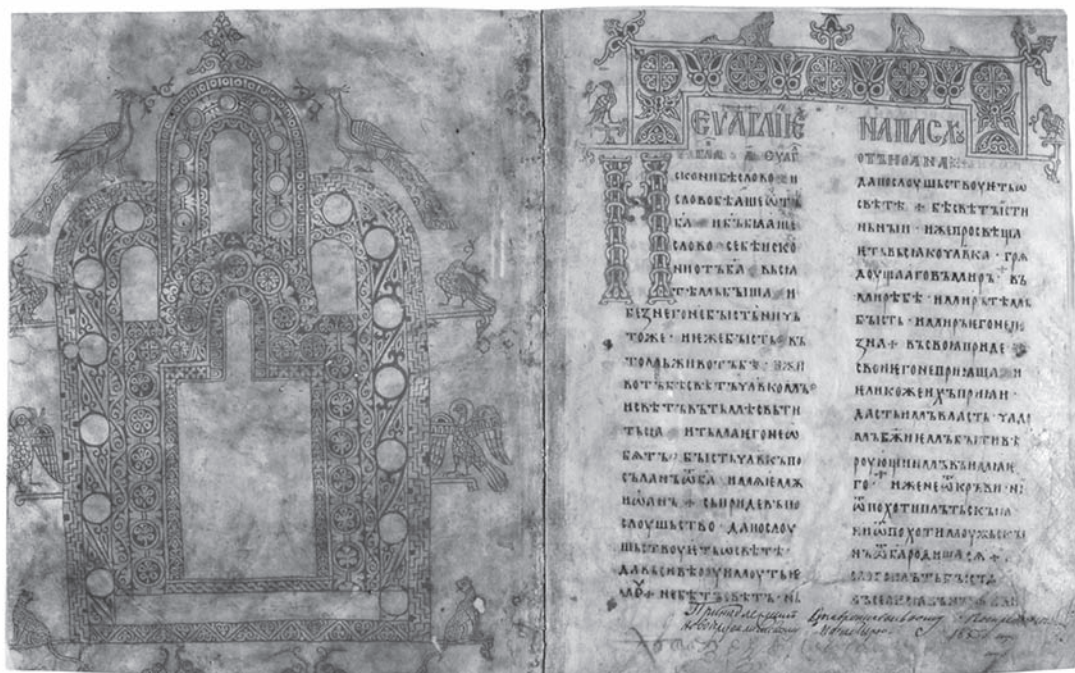 ЕУАГЛИѤ
СКОНИБѢСЛОВО · И
СЛОВОБѢАШЕѾТЪ
БА҃ · ИБЪ҃БѢАШЕ
СЛОВО · СЕБѢИСКО
НИОТЪБА҃ · ВЬСІА
ТѢМЬБЫША · И
БЕЗНЕГОНЕБЫСТЬНИЧЬ
ТОЖЕ · ИѤЖЕБЫСТЬ · ВЪ
ТОМЬЖИВОТЪБѢ · ИЖИ
ВОТЪБѢСВѢТЪЧЛ҃ВКОМЪ·
ИСВѢТЪВЪТЬМѢСВЬТИ
ТЬСѦ · ИТЬМАѤГОНЕѾ
БѦТЪ · БЫСТЬЧЛ҃ВКЪПО
СЪЛАНЪѾБА҃ ·
ИѠАНЪ + СЬПРИДЕВЪПО
СЛОУШЬСТВО · ДАПОСЛОУ
ШЬСТВОУѤТЬѠСВѢТѢ·
ДАВЬСИВѢРОУИМОУТЬѤ
МОУ + НЕБѢТЪСВѢТЪ · НЪ
НАПАСХѪ
ОТЪИОАНА
ДАПОСЛОУШЬСТВОУѤТЬѠ
СВѢТѢ + БѢСВѢТЪИСТИ
НЬНЫИ · ИЖЕПРОСВѢЩА
ѤТЬВЬСІАКОЧЛ҃ВКА · ГРѦ
ДОУЩАГОВЪМИРЪ · ВЪ
МИРѢБѢ · ИМИРЪТѢМЬ
БЫСТЬ · ИМИРЪѤГОНЕПО
ЗНА + ВЪСВОІАПРИДЕ
СВОИѤГОНЕПРИІАША · И
ѤЛИКОЖЕИХЪПРИІАША ·
ДАСТЬИМЪВЛАСТЬ · ЧАДО
МЪБЖ҃ИѤМЪБЫТИВѢ
РОУЮЩИИМЪВЪИМѦѤ
ГО + ИЖЕНЕѾКРЪВИ · НИ
ѾПОХОТИПЛЪТЬСКЫІА
НИѾПОХОТИМОУЖЬСКЫ
НЪѾБ҃АРОДИШАСѦ +
СЛОВОПЛЪТЬБЫСТЬ
Принадлежащий Ставропигиальному Воскресенскому
новоіерусалимскому монастырю